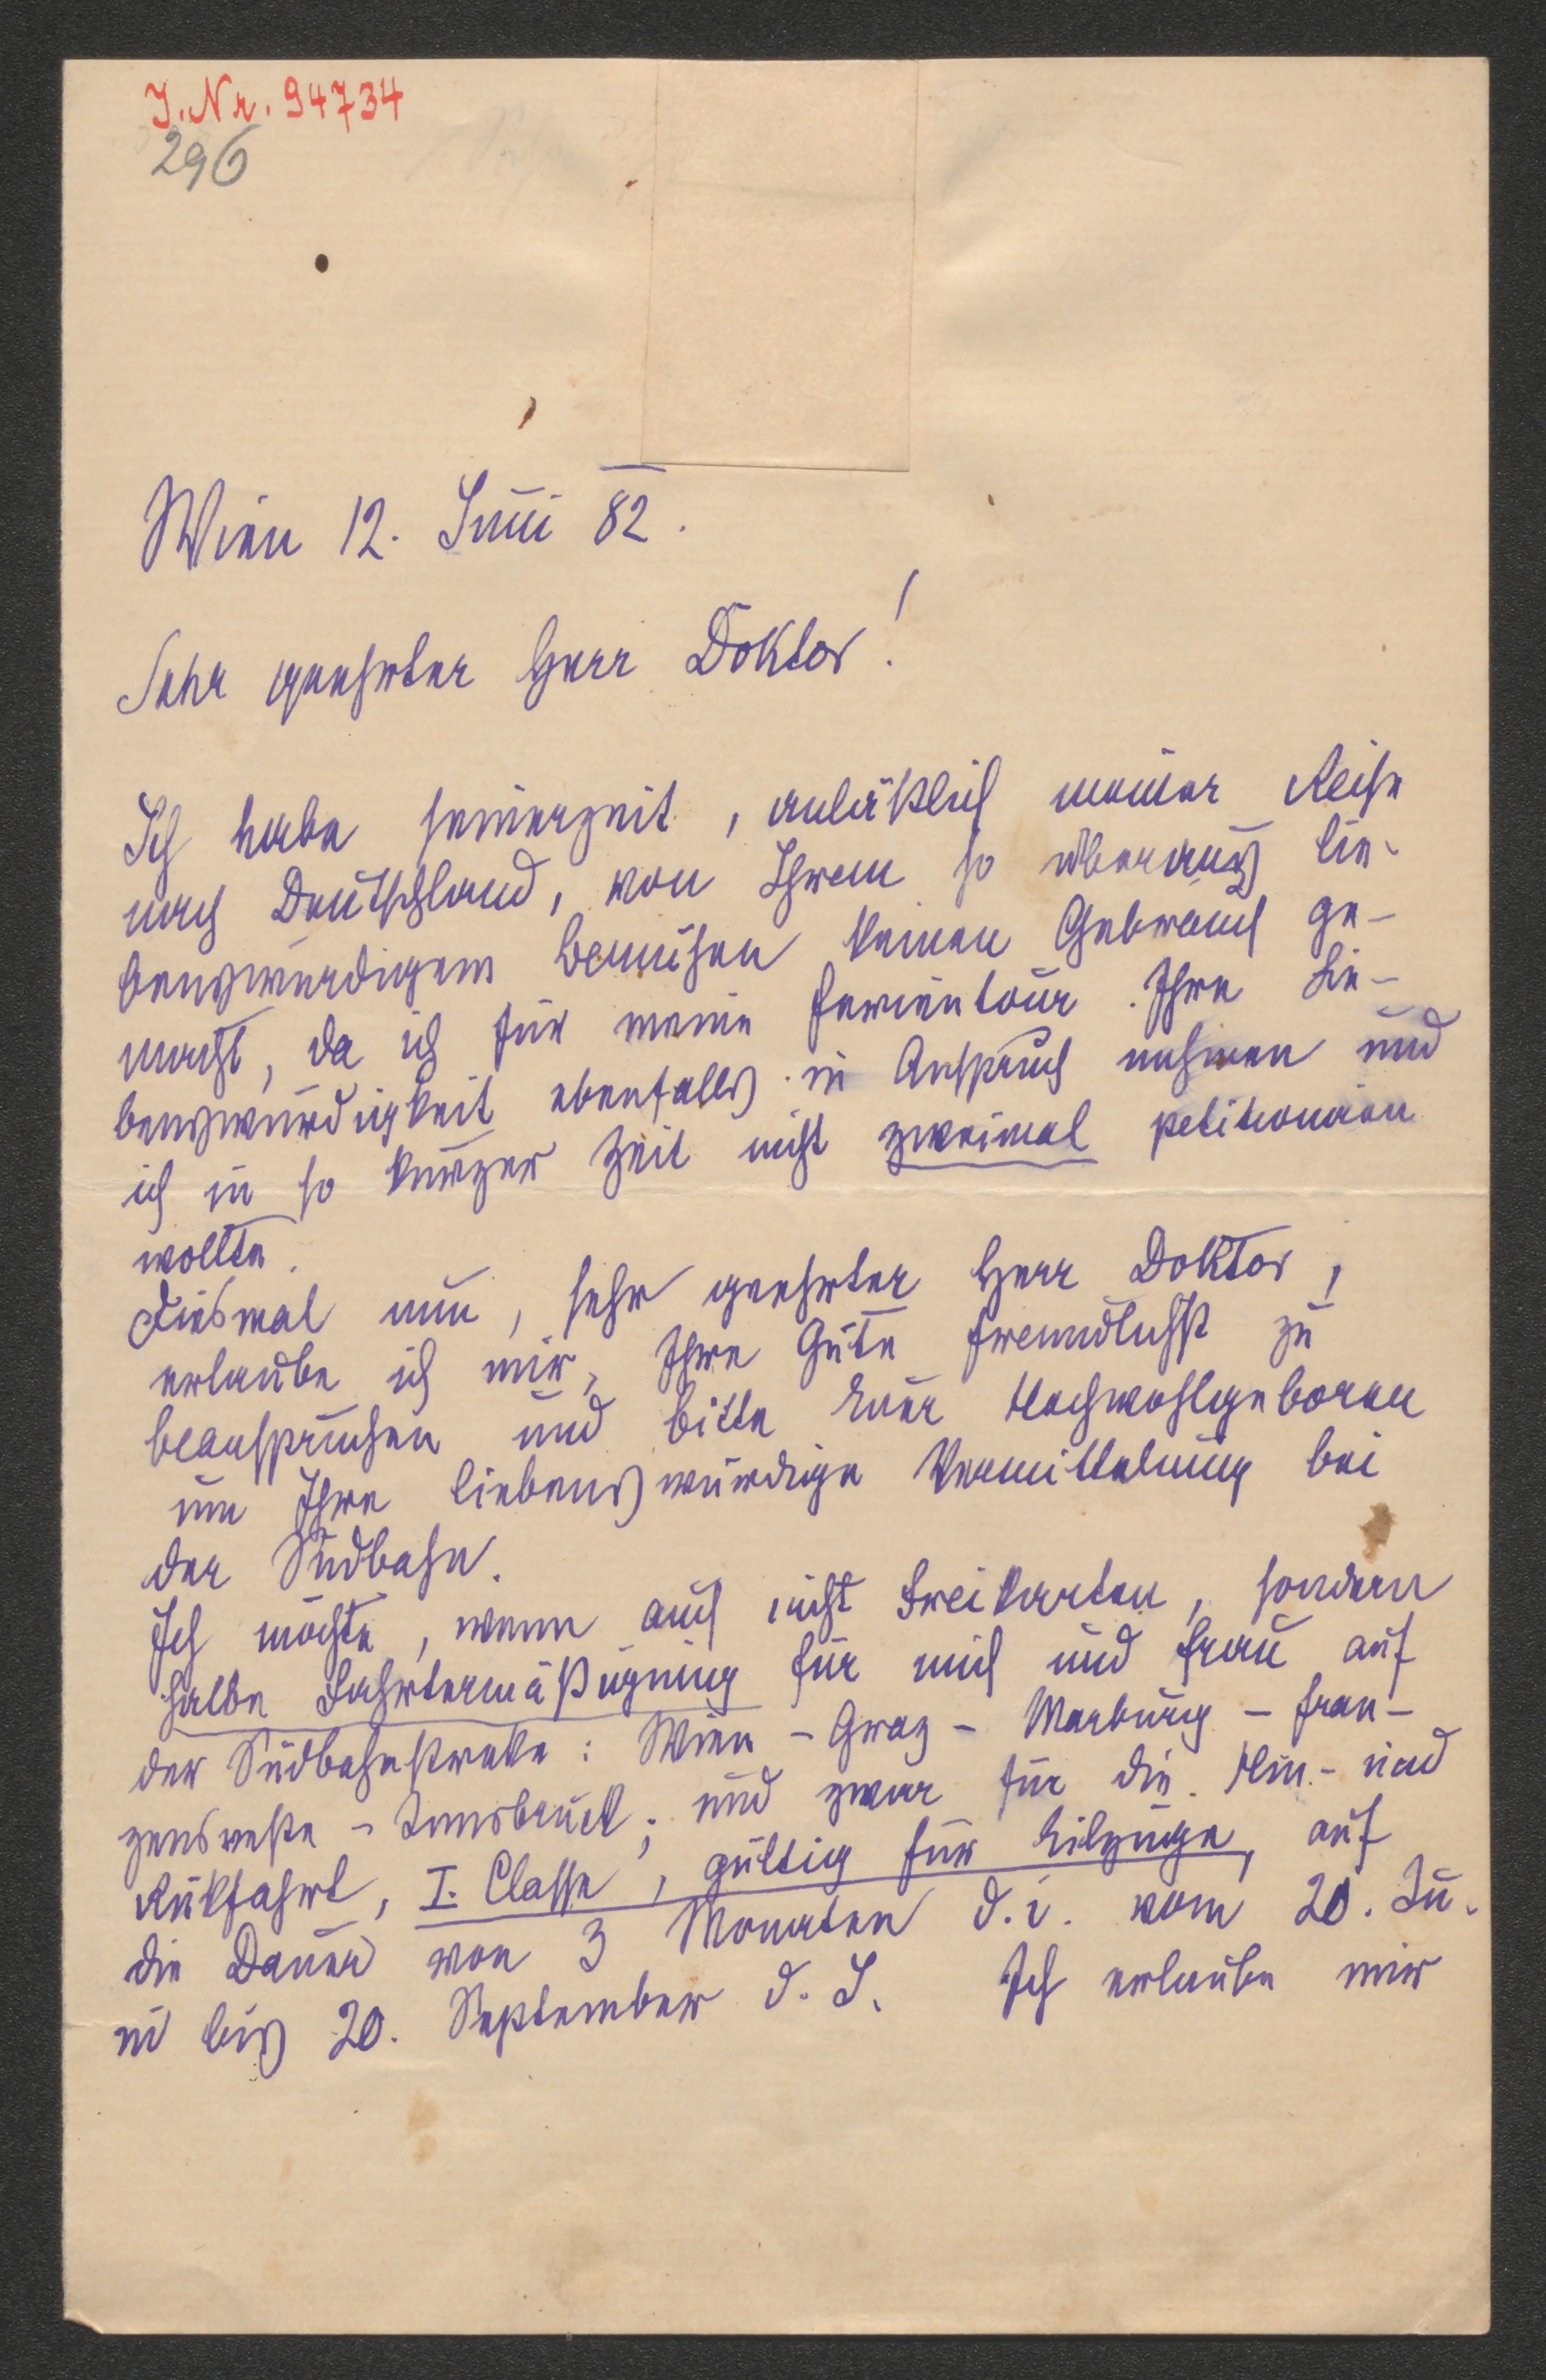 J. Nr. 94734
296
Wien 12. Juni 82.
Sehr geehrter Herr Doktor!
Ich habe seinerzeit, anläßlich meiner Reise
nach Deutschland, von Ihrem so überaus lie-
benswürdigem Bemühen keinen Gebrauch ge-
macht, da ich für meine Ferientour Ihre Lie-
benswürdigkeit ebenfalls in Anspruch nehmen und
ich in so kurzer Zeit nicht zweimal petitioniren
wollte.
Diesmal nun, sehr geehrter Herr Doktor,
erlaube ich mir, Ihre Güte freundlichst zu
beanspruchen und bitte Euer Hochwohlgeboren
um Ihre liebenswürdige Vermittelung bei
der Südbahn.
Ich möchte, wenn auch nicht Freikarten, sondern
halbe Fahrtermäßigung für mich und Frau auf
der Südbahnstreke: Wien - Graz - Marburg - Fran-
zensveste - Innsbruck; und zwar für die Hin- und
Rükfahrt, I. Classe, gültig für Eilzüge, auf
die Dauer von 3 Monaten d. i. vom 20. Ju-
ni bis 20. September d. J. Ich erlaube mir